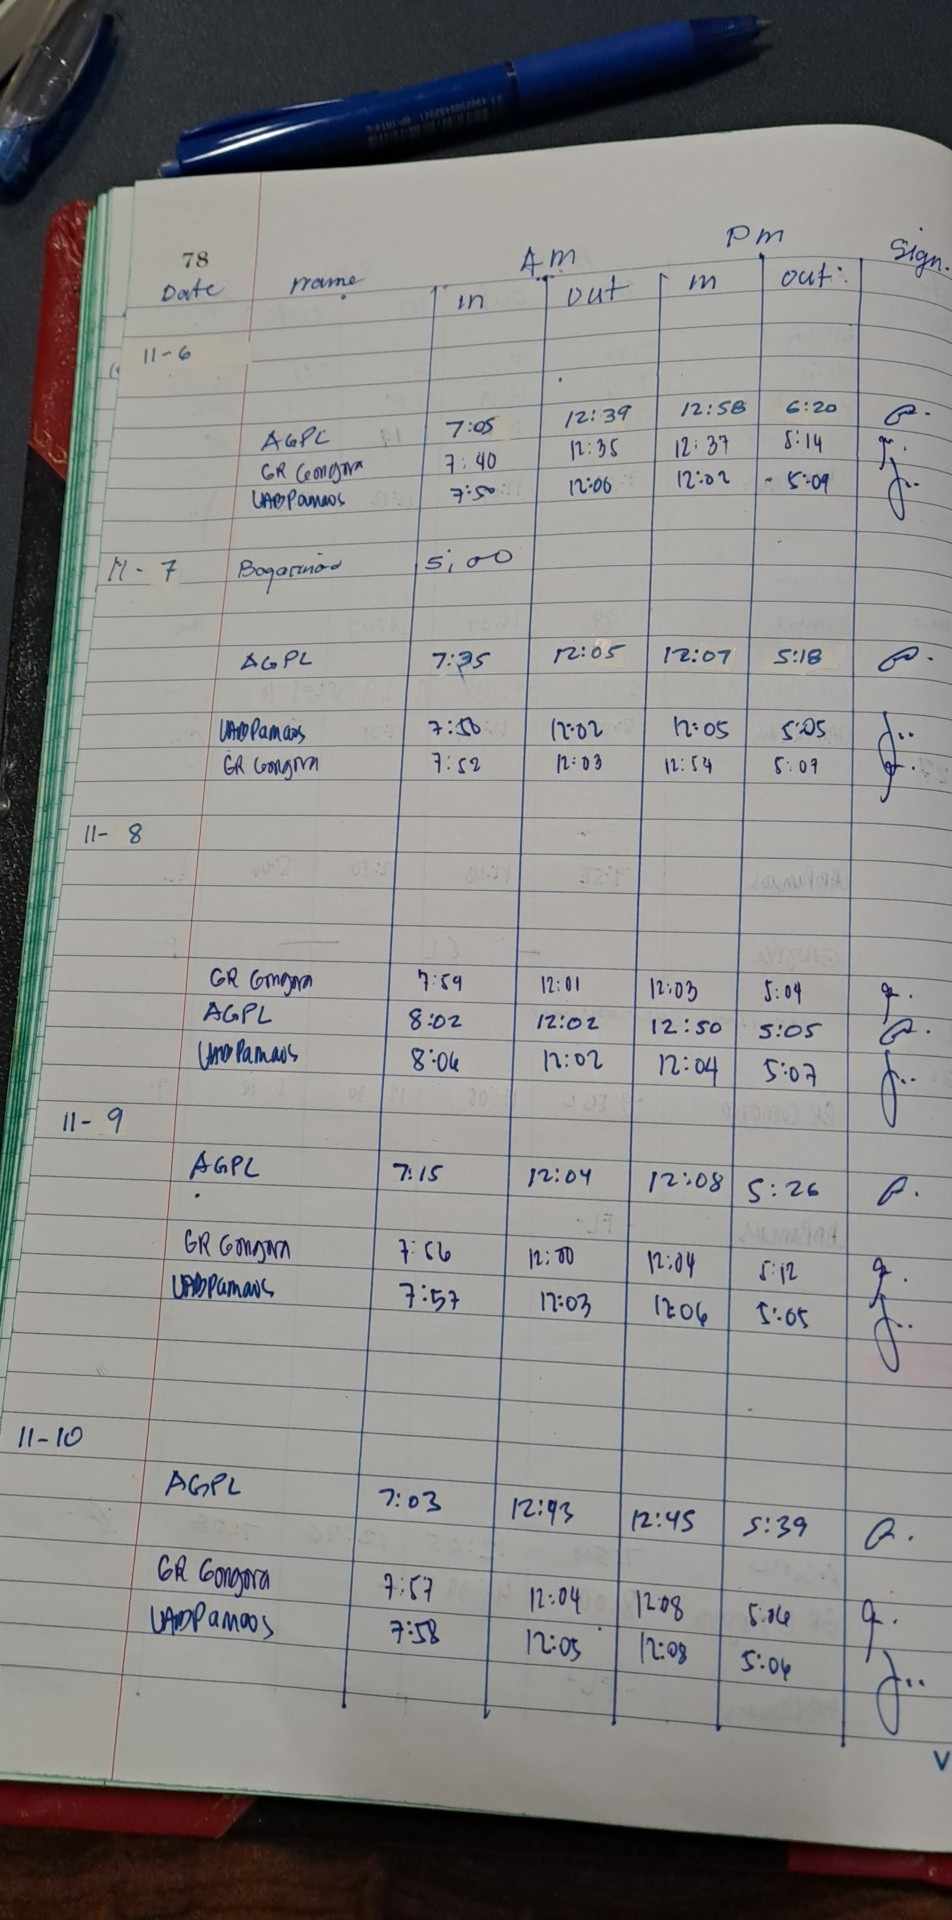 78
Am Pm Sign.
Date name in out in out:
11-6
AGPL 7:05 12:39 12:58 6:20
GR Gongora 7:40 12:35 12:37 5:14
UABPamaos 7:50 12:06 12:02 5:09
11-7 5:00
AGPL 7:35 12:05 12:07 5:18
UABPamaos 7:50 12:02 12:05 5:05
GR Gongora 7:52 12:03 12:54 5:07
11-8
GR Gongora 7:59 12:01 12:03 5:04
AGPL 8:02 12:02 12:50 5:05
UABPamaos 8:06 12:02 12:04 5:07
11-9
AGPL 7:15 12:04 12:08 5:26
GR Gongora 7:56 12:00 12:04 5:12
UABPamaos 7:57 12:03 12:06 5:05
11-10
AGPL 7:03 12:43 12:45 5:39
GR Gongora 7:57 12:04 12:08 5:06
UABPamaos 7:58 12:05 12:08 5:06